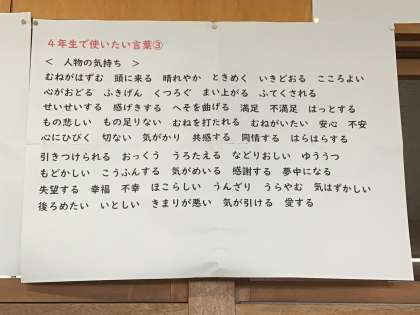 4年生で使いたい言葉③
< 人物の気持ち >
むねがはずむ 頭に来る 晴れやか ときめく いきどおる こころよい
心がおどる ふきげん くつろぐ まい上がる ふてくされる
せいせいする 感げきする へそを曲げる 満足 不満足 はっとする
もの悲しい もの足りない むねを打たれる むねがいたい 安心 不安
心にひびく 切ない 気がかり 共感する 同情する はらはらする
引きつけられる おっくう うろたえる などりおしい ゆううつ
もどかしい こうふんする 気がめいる 感謝する 夢中になる
失望する 幸福 不幸 ほこらしい うんざり うらやむ 気はずかしい
後ろめたい いとしい きまりが悪い 気が引ける 愛する